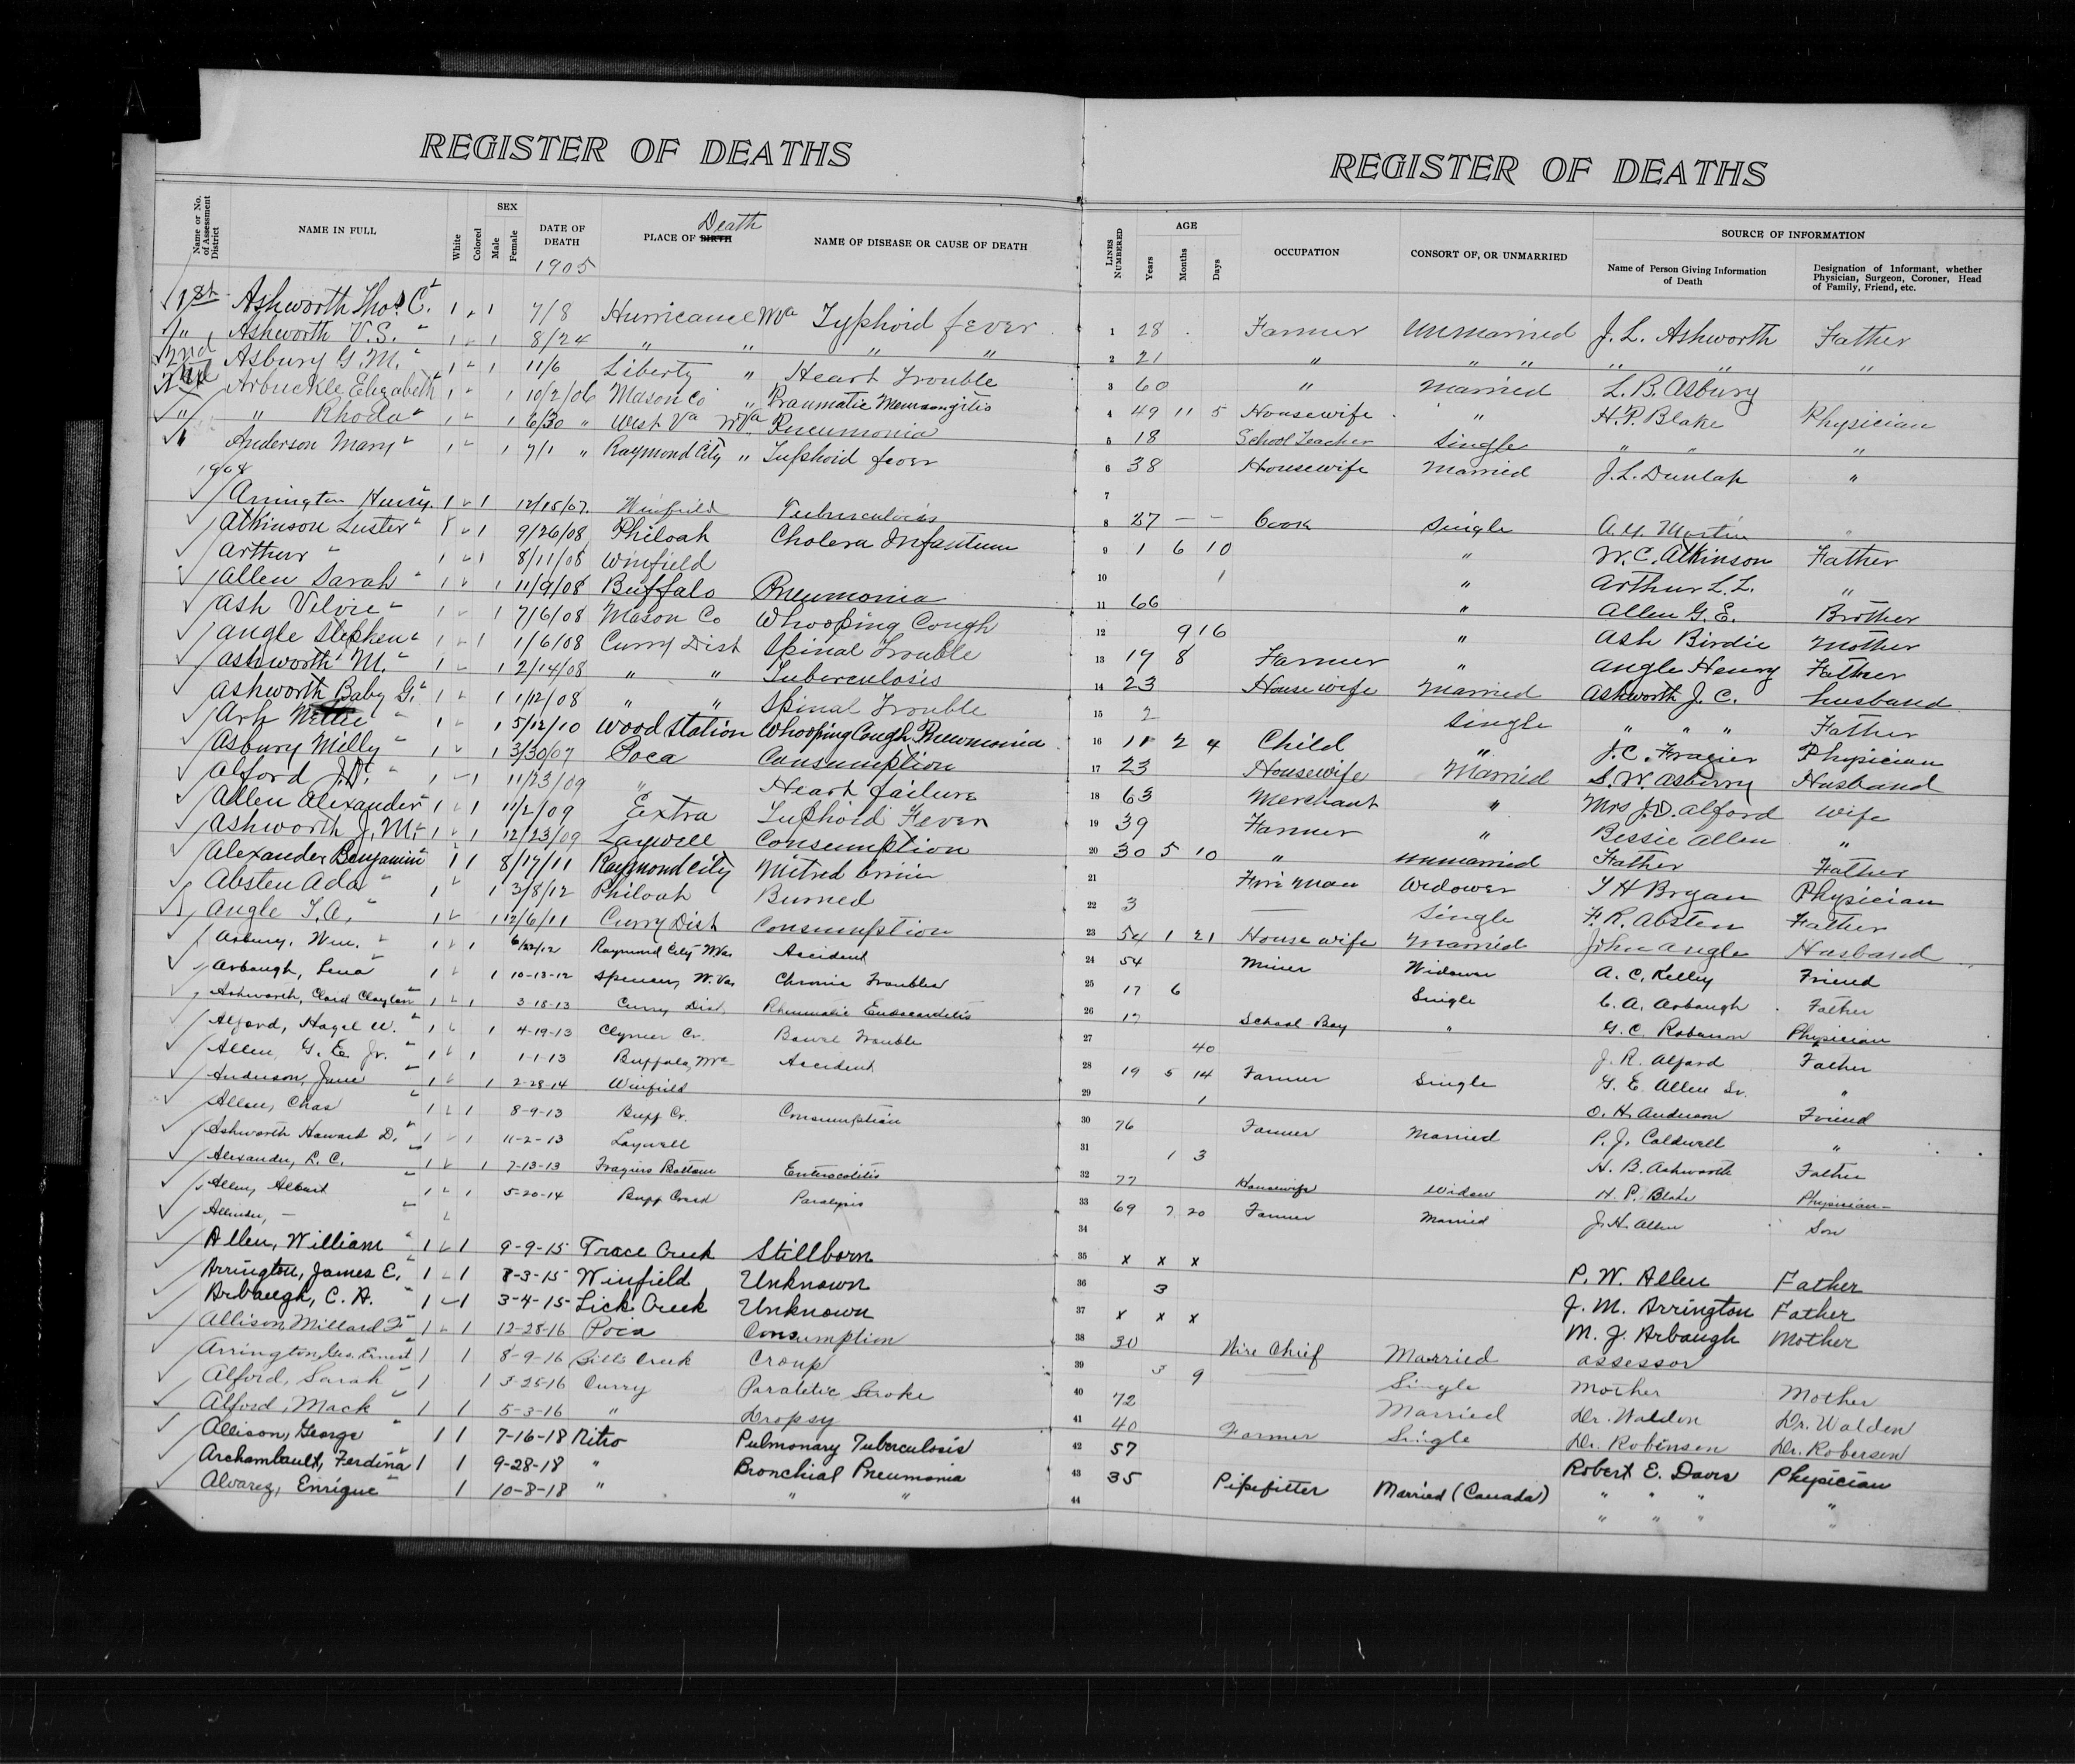 REGISTER OF DEATHS
REGISTER OF DEATHS
Name or No. of Assessment District
NAME IN FULL
White
Colored
SEX
Male
Female
DATE OF DEATH
1905
PLACE OF BIRTH Death
NAME OF DISEASE OR CAUSE OF DEATH
LINES NUMBERED
AGE
Years
Months
Days
OCCUPATION
CONSORT OF, OR UNMARRIED
SOURCE OF INFORMATION
Name of Person Giving Information of Death
Designation of Informant, whether Physician, Surgeon, Coroner, Head of Family, Friend, etc.
1st Ashworth Thos. C. 1 1 7/8 Hurricane W Va Typhoid fever 1 28 Farmer Unmarried J. L. Ashworth Father
" Ashworth V. S. 1 1 8/24 " " " " 2 21 " " " " " "
2nd Asbury G. M. 1 1 11/6 Liberty " Heart Trouble 3 60 " Married L. B. Asbury
Arbuckle Elizabeth 1 1 10/2/06 Mason Co " 4 49 11 5 Housewife " H. P. Blake Physician
" " Rhoda 1 1 6/30 " West Va W Va Pneumonia 5 18 School Teacher Single " " "
Anderson Mary 1 1 7/1 " Raymond City " Typhoid fever 6 38 Housewife Married J. L. Dunlap "
1908 7
Arrington Henry 1 1 12/15/07 Winfield Tuberculosis 8 27 — — Cook Single A. Y. Martin "
Atkinson Luster 1 1 9/26/08 Philoah Cholera Infantum 9 1 6 10 " W. C. Atkinson Father
Arthur 1 1 8/11/08 Winfield 10 1 " Arthur L. L. "
Allen Sarah 1 1 11/9/08 Buffalo Pneumonia 11 66 " Allen G. E. Brother
Ash Velvie 1 1 7/6/08 Mason Co Whooping Cough 12 9 16 " Ash Birdie Mother
Angle Stephen 1 1 1/6/08 Curry Dist Spinal Trouble 13 19 8 Farmer " Angle Henry Father
Ashworth M. 1 1 2/14/08 " " Tuberculosis 14 23 Housewife Married Ashworth J. C. husband
Ashworth Baby G. 1 1 1/12/08 " " Spinal Trouble 15 2 Single " " " Father
Ash Nettie 1 1 5/12/10 Wood Station Whooping Cough Pneumonia 16 2 4 Child " J. C. Frazier Physician
Asbury Milly 1 1 3/30/07 Poca Consumption 17 23 Housewife Married S. W. Asbury Husband
Alford J. D. 1 1 11/23/09 " Heart failure 18 63 Merchant " Mrs J. D. Alford Wife
Allen Alexander 1 1 11/2/09 Extra Typhoid Fever 19 39 Farmer " Bessie Allen "
Ashworth J. M. 1 1 12/23/09 Laywell Consumption 20 30 5 10 " Unmarried Father Father
Alexander Benjamin 1 1 8/17/11 Raymond City 21 Fire Man Widower T H Bryan Physician
Absten Ada 1 1 3/8/12 Philoah Burned 22 3 — Single F. R. Absten Father
Angle T. A. 1 1 12/6/11 Curry Dist Consumption 23 54 1 21 Housewife Married John Angle Husband
Asbury, Wm. 1 1 6/22/12 Raymond City W. Va. Accident 24 54 Miner Widower A. C. Kelley Friend
Arbaugh, Lena 1 1 10-13-12 Spencer, W. Va. Chronic Troubles 25 17 6 Single C. A. Arbaugh Father
Ashworth, Claid Clayton 1 1 3-18-13 Curry Dist. Rheumatic Endocarditis 26 17 School Boy " G. C. Robinson Physician
Alford, Hazel W. 1 1 4-19-13 Clymer Cr. Bowel Trouble 27 40 — — J. R. Alford Father
Allen, G. E. Jr. 1 1 1-1-13 Buffalo, W Va Accident 28 19 5 14 Farmer Single G. E. Allen Sr. "
Anderson, Jane 1 1 2-28-14 Winfield 29 1 O. H. Anderson Friend
Allen, Chas 1 1 8-9-13 Buff Cr. Consumption 30 76 Farmer Married P. J. Caldwell "
Ashworth Howard D. 1 1 11-2-13 Laywell 31 1 3 H. B. Ashworth Father
Alexander, L. C. 1 1 7-13-13 Fraziers Bottom Enterocolitis 32 77 Housewife Widow H. P. Blake Physician
Allen, Albert 1 1 5-20-14 Buff Creek Paralysis 33 69 7 20 Farmer Married J. H. Allen Son
34
Allen, William 1 1 9-9-15 Trace Creek Stillborn 35 x x x P. W. Allen Father
Arrington, James E. 1 1 8-3-15 Winfield Unknown 36 3 J. M. Arrington Father
Arbaugh, C. A. 1 1 3-4-15 Lick Creek Unknown 37 x x x M. J. Arbaugh Mother
Allison Millard F 1 1 12-28-16 Poca Consumption 38 30 Wire Chief Married Assessor
Arrington, Geo. Ernest 1 1 8-9-16 Bills Creek Croup 39 3 9 — Single Mother Mother
Alford, Sarah 1 1 3-25-16 Curry Paraletic Stroke 40 72 Married Dr. Walden Dr. Walden
Alford, Mack 1 1 5-3-16 " Dropsy 41 40 Farmer Single Dr. Robinson Dr. Roberson
Allison, George 1 1 7-16-18 Nitro Pulmonary Tuberculosis 42 57 Robert E. Davis Physician
Archambault, Ferdina 1 1 9-28-18 " Bronchial Pneumonia 43 35 Pipefitter Married (Canada) " " " "
Alvarez, Enrique 1 10-8-18 " " " 44 " " " "